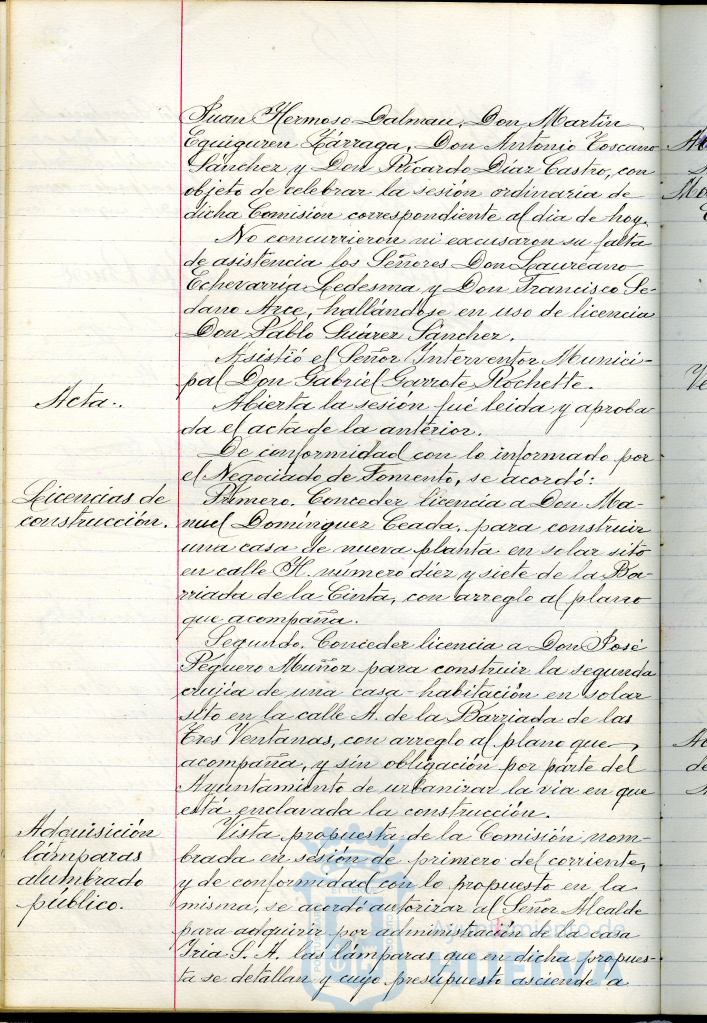 Juan Hermoso Dalmau, Don Martín
Eguiguren Lárraga, Don Antonio Toscano
Sánchez y Don Ricardo Díaz Castro, con
objeto de celebrar la sesión ordinaria de
dicha Comisión correspondiente al dia de hoy.
No concurrieron ni excusaron su falta
de asistencia los Señores Don Laureano
Echevarría Ledesma y Don Francisco Se-
dano Arce, hallándose en uso de licencia
Don Pablo Suárez Sánchez.
Asistió el Señor Interventor Munici-
pal Don Gabriel Garrote Rochette.
Acta.
Abierta la sesión fué leida y aproba
da el acta de la anterior.
De conformidad con lo informado por
el Negociado de Fomento, se acordó:
Licencias de
construcción.
Primero. Conceder licencia a Don Ma-
nuel Domínguez Ceada, para construir
una casa de nueva planta en solar sito
en calle H. número diez y siete de la Ba-
rriada de la Cinta, con arreglo al plano
que acompaña.
Segundo. Conceder licencia a Don José
Peguero Muñoz para construir la segunda
crujía de una casa-habitación en solar
sito en la calle A. de la Barriada de las
Tres Ventanas, con arreglo al plano que
acompaña, y sin obligación por parte del
Ayuntamiento de urbanizar la via en que
está enclavada la construcción.
Adquisición
lámparas
alumbrado
público.
Vista propuesta de la Comisión nom-
brada en sesión de primero del corriente,
y de conformidad con lo propuesto en la
misma, se acordó autorizar al Señor Alcalde
para adquirir por administración de la casa
Iria S. A. las lámparas que en dicha propues-
ta se detallan y cuyo presupuesto asciende a
Ayuntamiento de
HUELVA